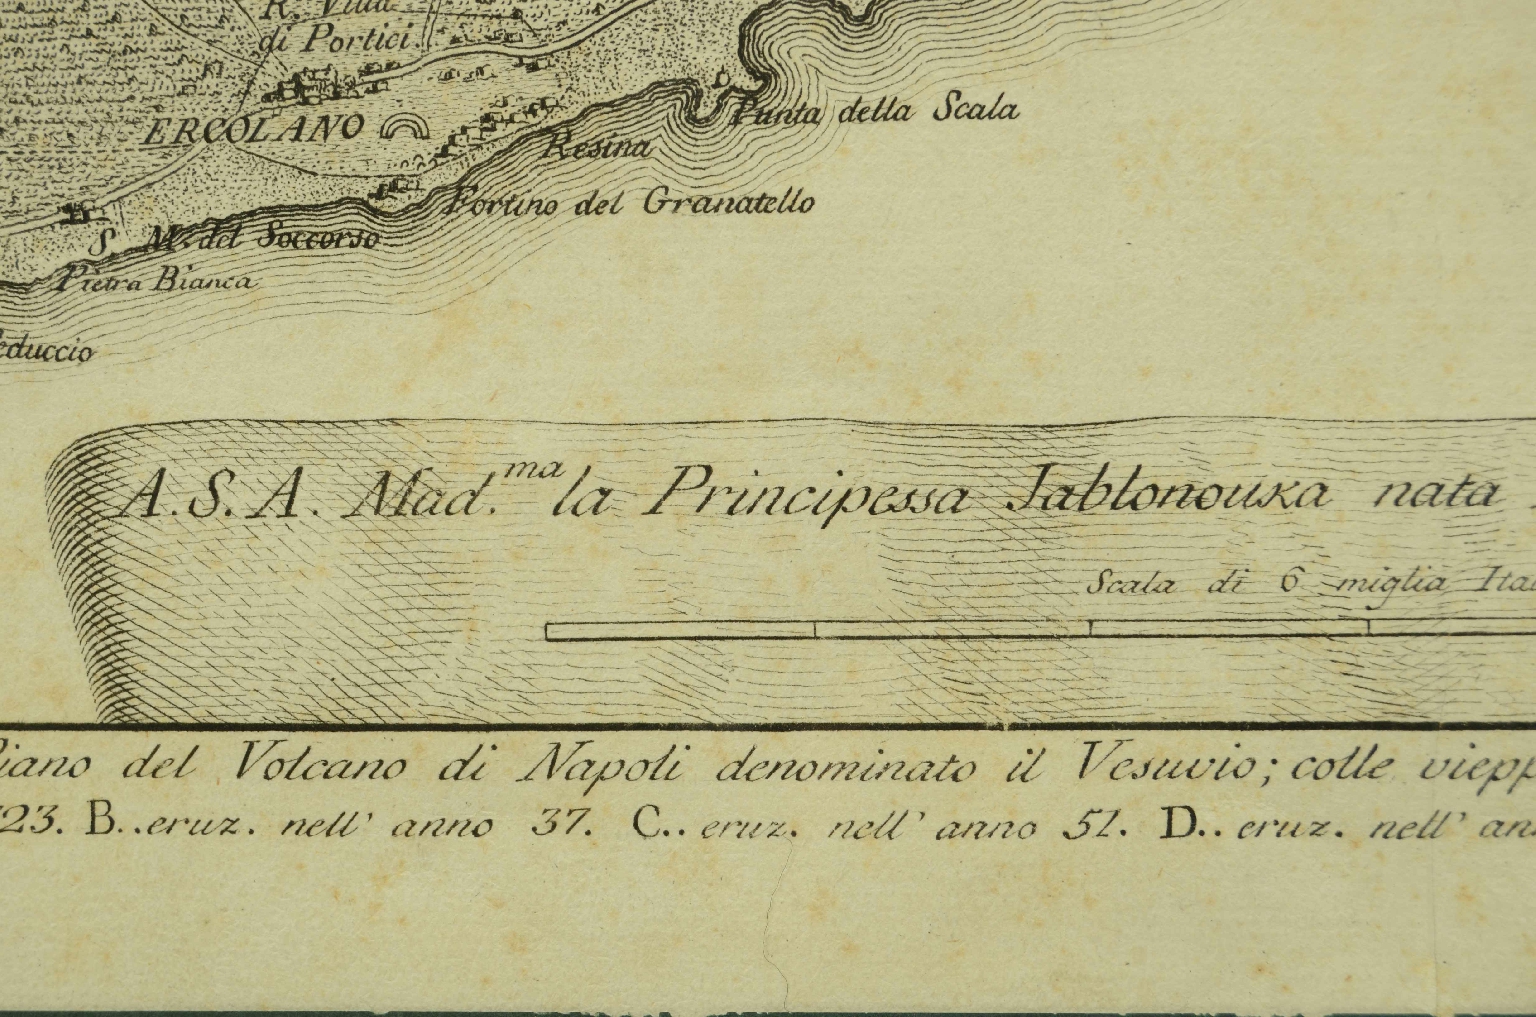 R. Villa
di Portici.
ERCOLANO
Punta della Scala
Resina
Fortino del Granatello
S. M. del Soccorso
Pietra Bianca
A. S. A. Mad.ma la Principessa Jablonouska nata
Scala di 6 miglia
del Volcano di Napoli denominato il Vesuvio; colle
23. B.. eruz. nell' anno 37. C.. eruz. nell' anno 51. D.. eruz. nell'